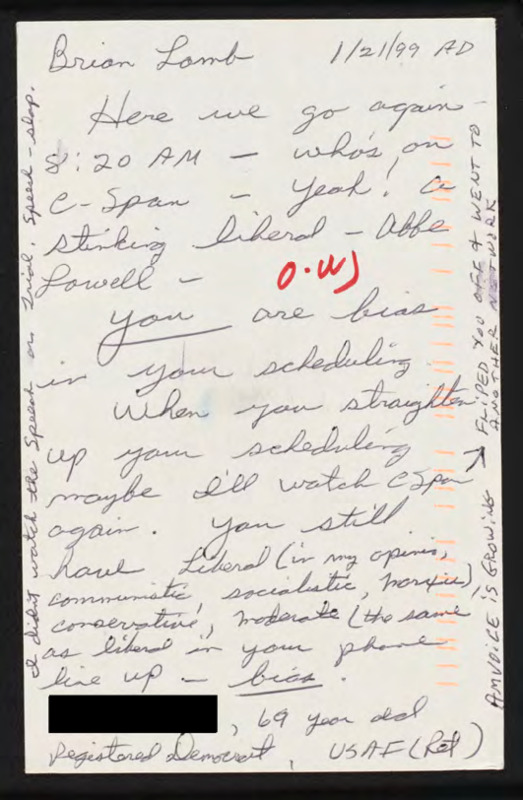 Brian Lamb 1/21/99 AD
Here we go again -
8:20 AM - who's, on
C-Span - Yeah! a
stinking liberal - Abbe
Lowell -
O.W
you are bias
in your scheduling
When you straighten
up your scheduling
maybe I'll watch CSpan
again. You still
have Liberal (in my opinio,
communistic, socialistic, Marxis)
conservative, moderate (the same
as liberal in your phone
line up - bias.
, 69 year old
Registered Democrat, USAF (Ret)
I didn't watch the Speech on Trial. Speech - slop.
AMVOICE IS GROWING → FLIPED YOU OFF & WENT TO
ANOTHER NETWORK